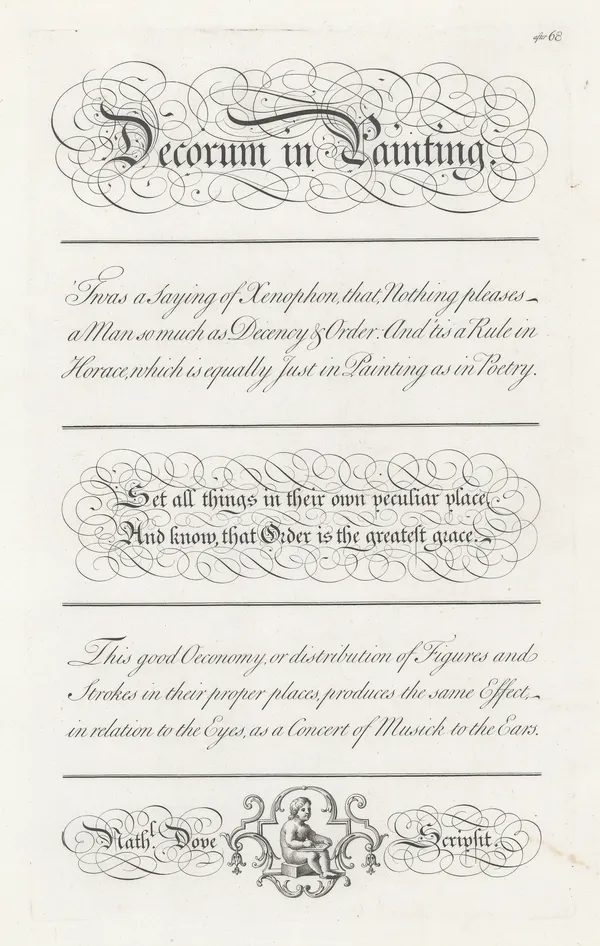 after 68
Decorum in Painting.
'Twas a Saying of Xenophon, that, Nothing pleases
a Man so much as Decency & Order: And 'tis a Rule in
Horace, which is equally Just in Painting as in Poetry.
Set all things in their own peculiar place,
And know, that Order is the greatest grace.
This good Oeconomy, or distribution of Figures and
Strokes in their proper places, produces the same Effect,
in relation to the Eyes, as a Concert of Musick to the Ears.
Nathl. Dove Scripsit.